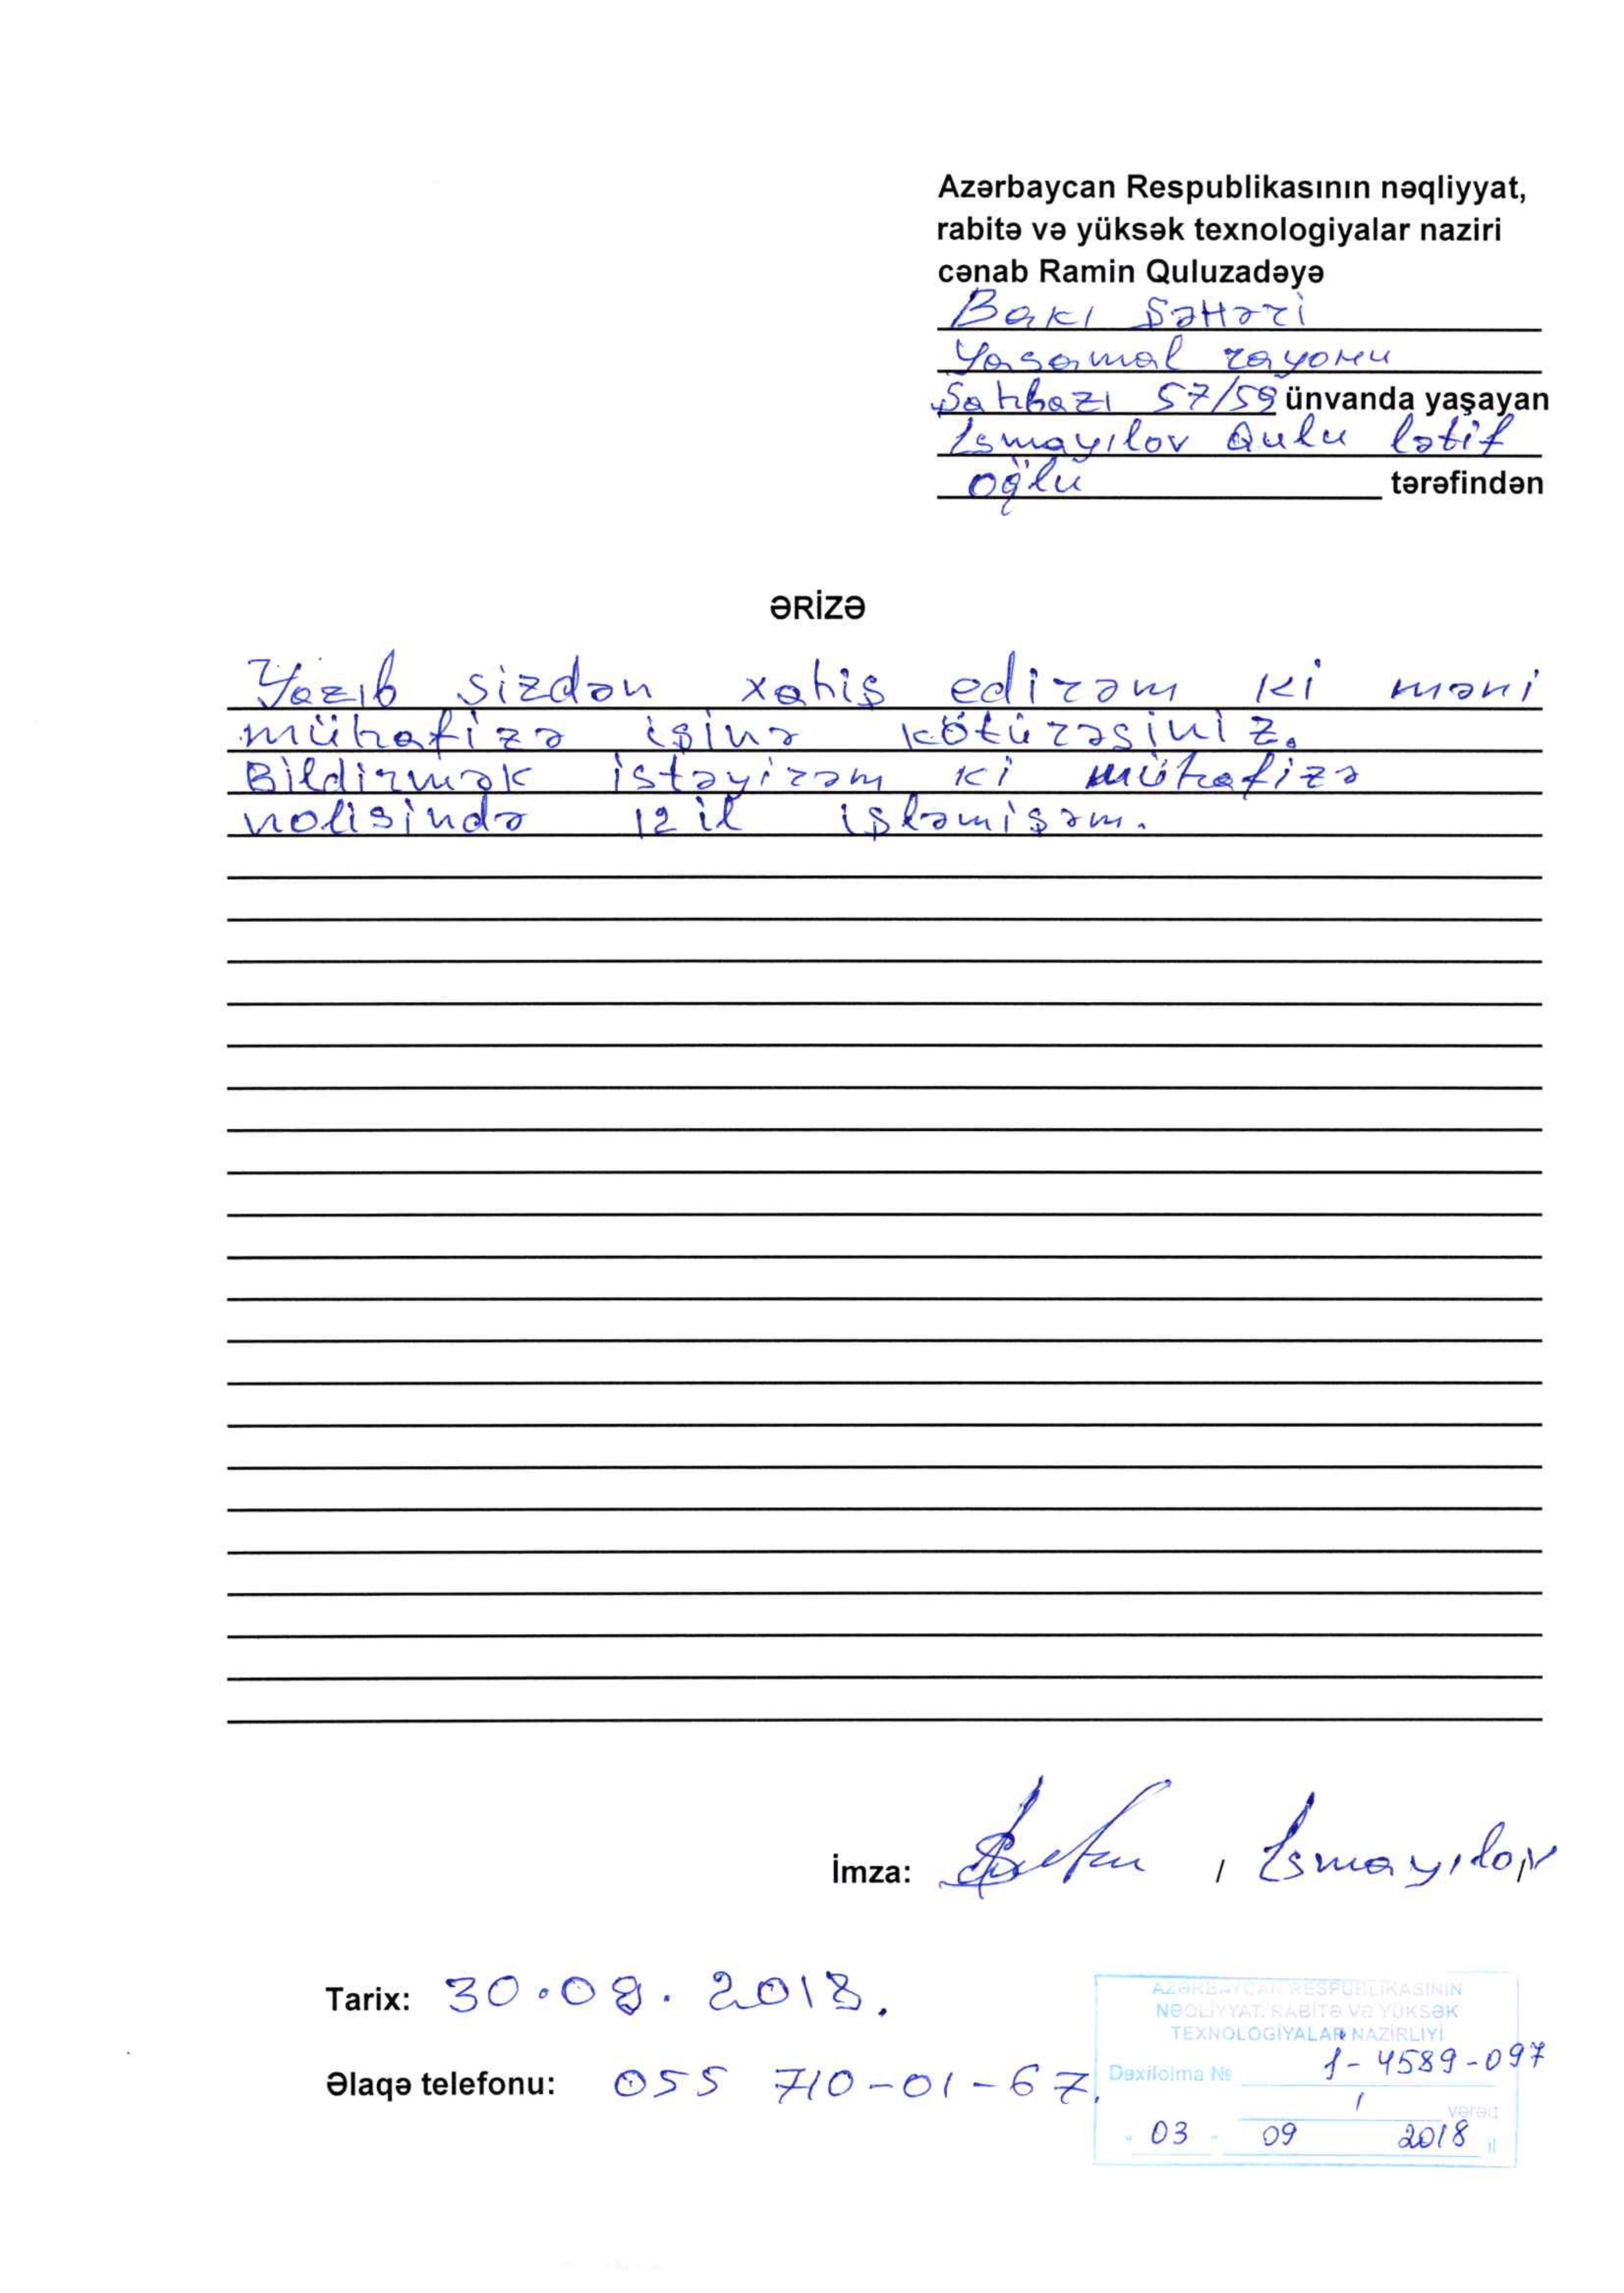 Azərbaycan Respublikasının nəqliyyat,
rabitə və yüksək texnologiyalar naziri
cənab Ramin Quluzadəyə
Bakı Şəhəri
Yasamal rayonu
Şahbazı 57/59 ünvanda yaşayan
Ismayılov Qulu lətif
oğlu tərəfindən
ƏRİZƏ
Yazıb sizdən xahiş edirəm ki məni
mühafizə işinə kötürəsiniz.
Bildirmək istəyirəm ki mühafizə
polisində 12 il işləmişəm.
İmza: , Ismayılov
Tarix: 30.08.2018.
Əlaqə telefonu: 055 710-01-67.
AZƏRBAYCAN RESPUBLİKASININ
NƏQLİYYAT, RABİTƏ VƏ YÜKSƏK
TEXNOLOGİYALAR NAZİRLİYİ
Daxilolma № 1-4589-097
1 vərəq
" 03 " 09 2018 il